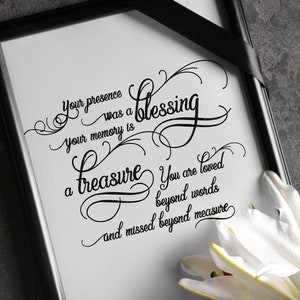 Your presence
was a blessing
your memory is
a treasure
You are loved
beyond words
and missed beyond measure